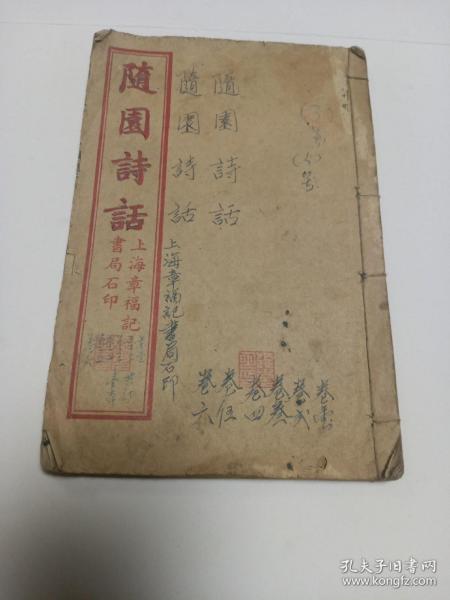 隨園詩話
上海章福記
書局石印
隨園詩話
上海章福記書局石印
隨園詩話
卷弍
卷叁
卷四
卷伍
卷六
孔夫子旧书网
www.kongfz.com